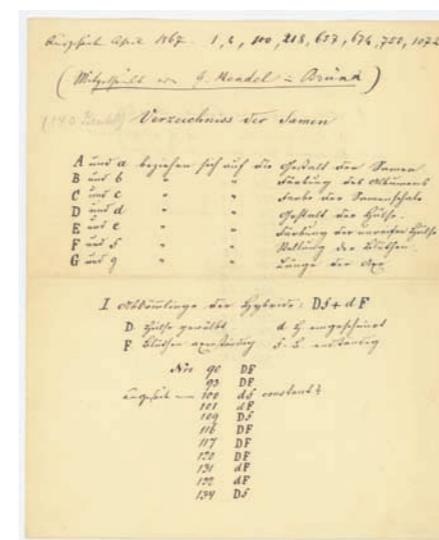 Ausgesäet April 1867. 1, 2, 100, 218, 657, 674, 750, 1072
(Mitgetheilt von G. Mendel in Brünn)
(140 Beutel) Verzeichniss der Samen
A und a beziehen sich auf die Gestalt der Samen
B und b " " Färbung des Albumens
C und c " " Farbe der Samenschale
D und d " " Gestalt der Hülse.
E und e " " Färbung der unreifen Hülse
F und f " " Stellung der Blüthen.
G und g " " Länge der Axe
I Abkömmlinge der Hybride: Df + dF
D Hülse gewölbt d H. eingeschnürt
F Blüthen axenständig f. B. endständig
Nro 90 DF
93 DF
ausgesäet 100 df constant
101 dF
109 Df
116 DF
117 DF
120 DF
131 dF
132 dF
134 Df